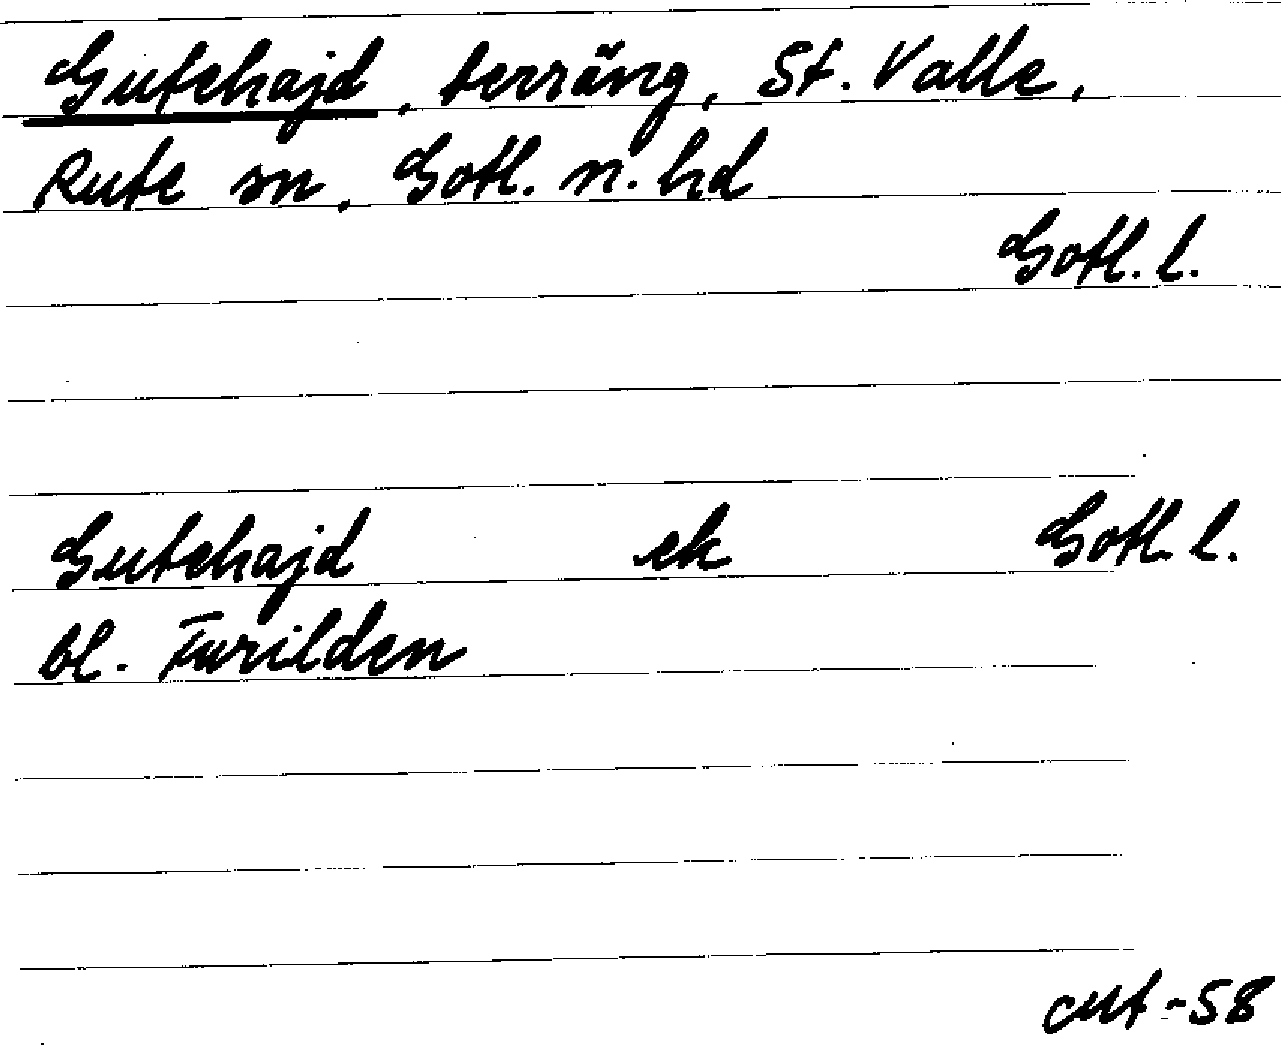 Gutehajd, terräng, St. Valle,
Rute sn, Gotl. n. hd
Gotl. l.
Gutehajd ek Gotl. l.
bl. Furilden
cut-58